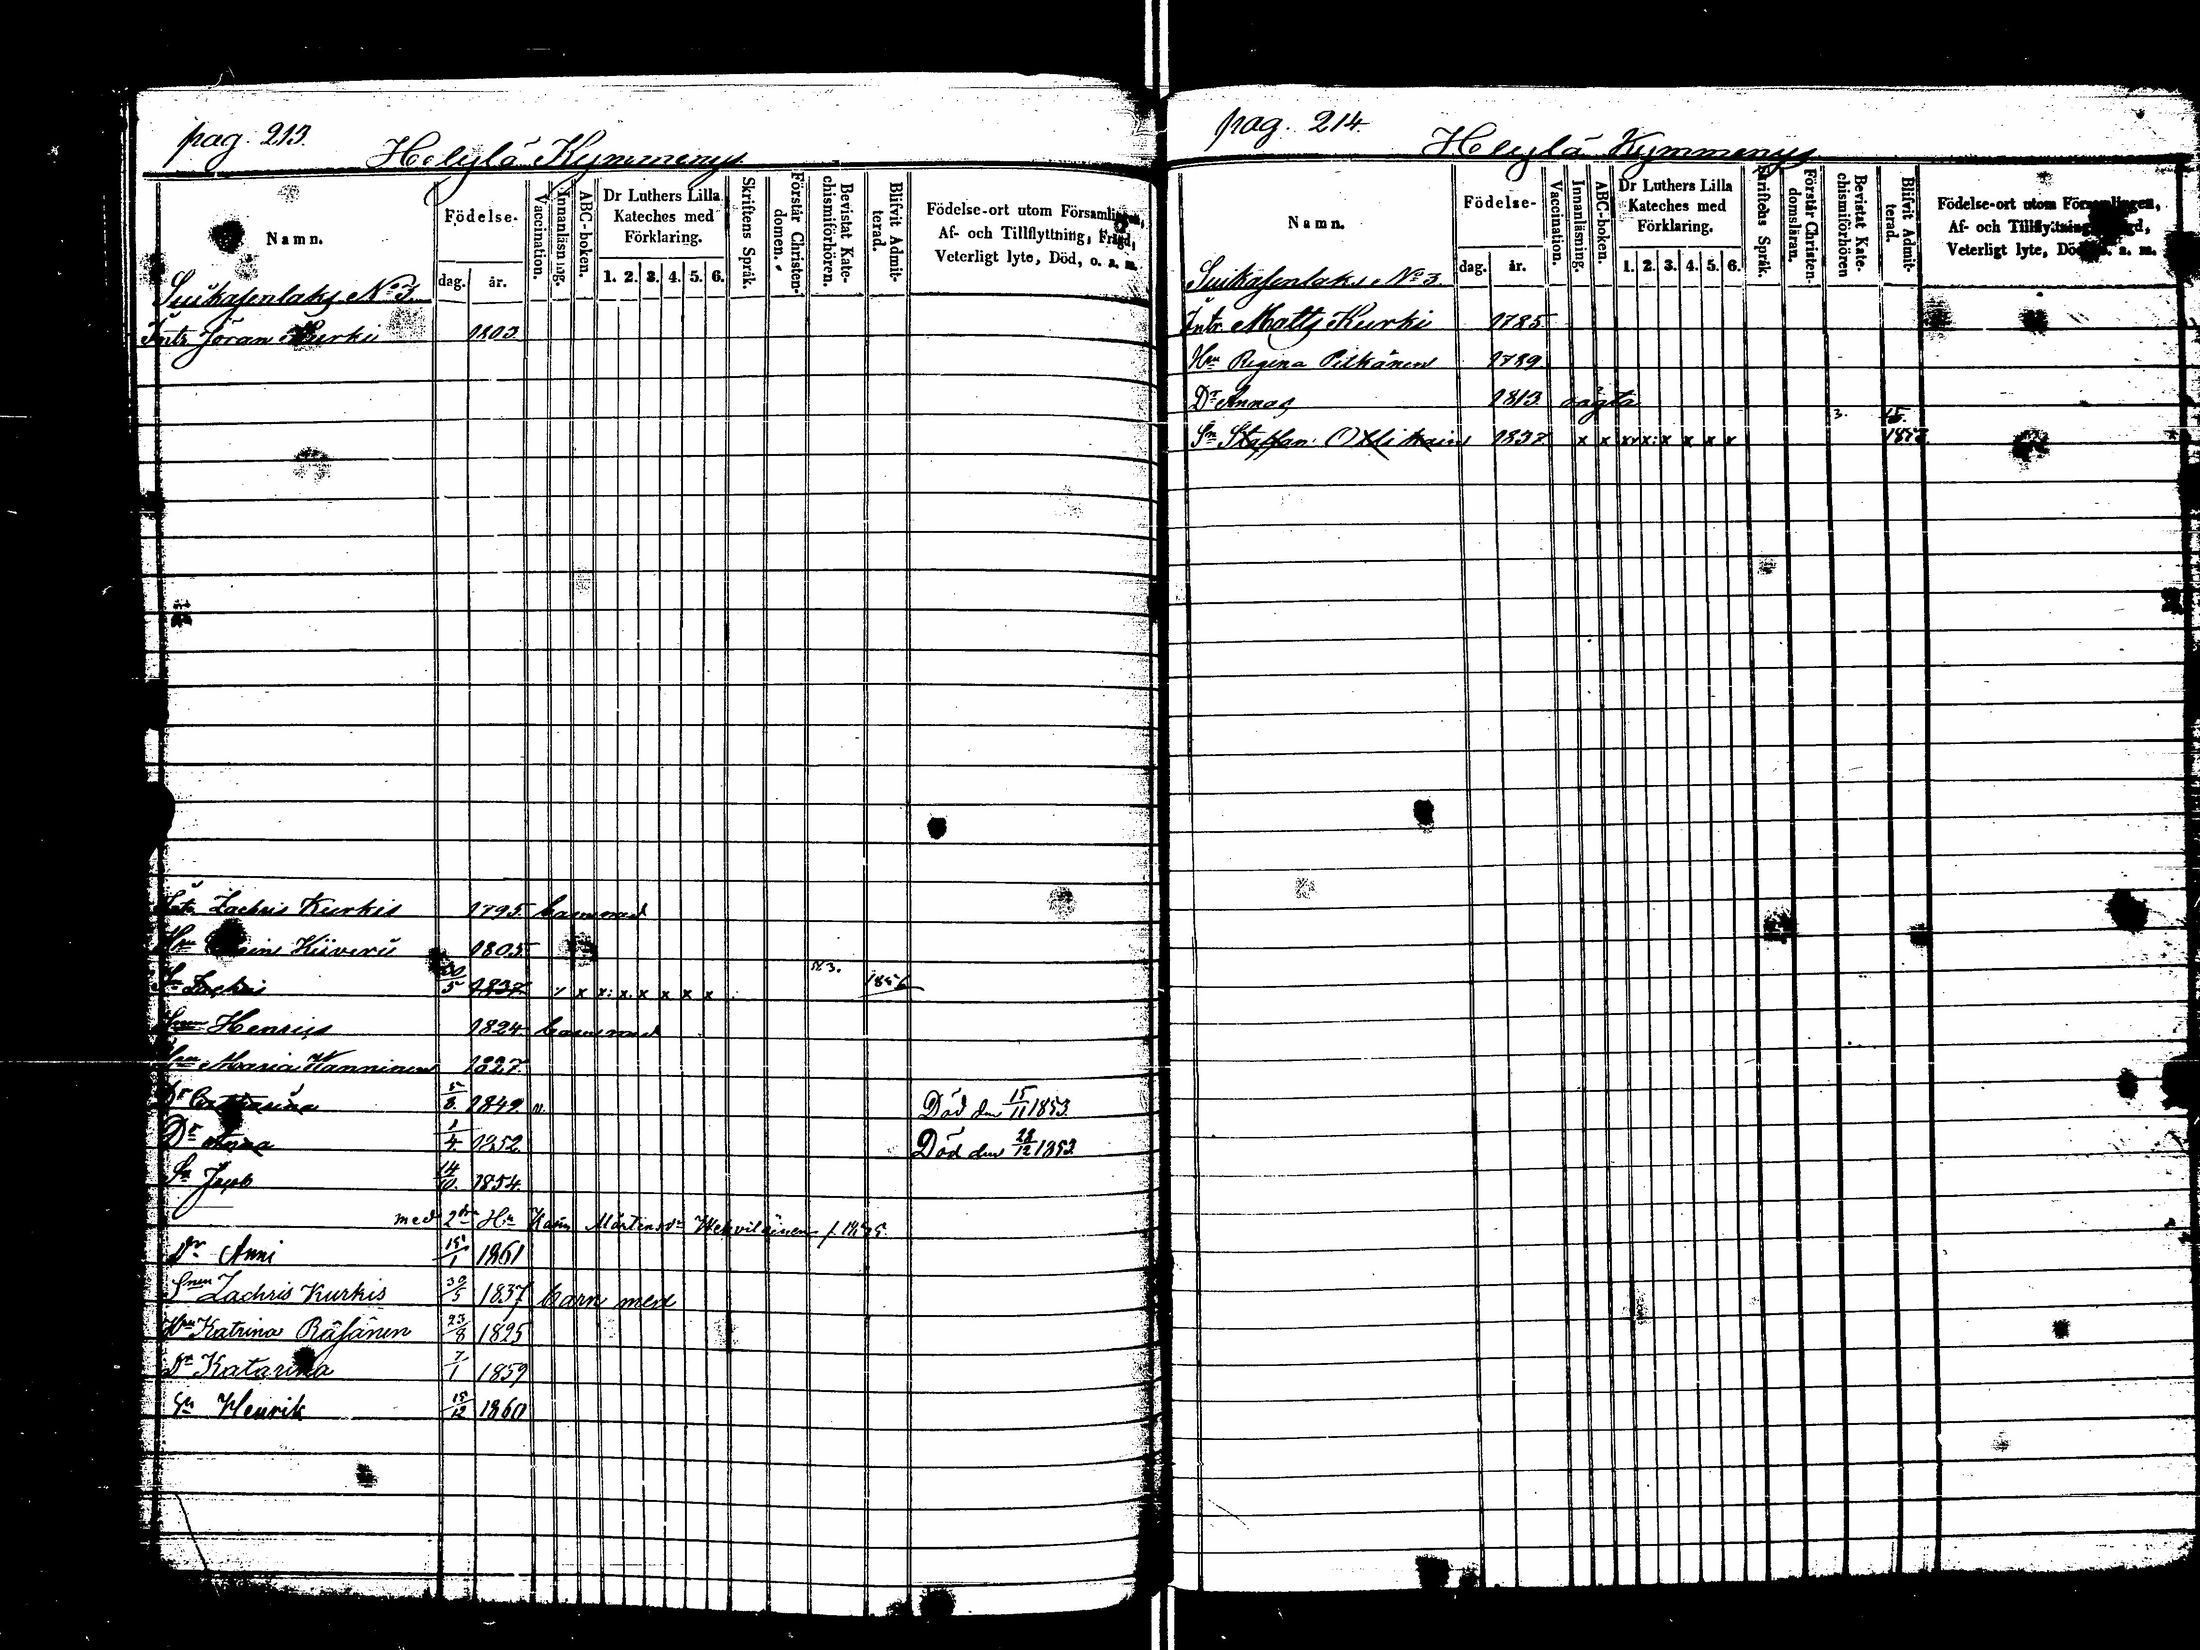 pag. 213.
Helylä Kymmenys
Namn.
Födelse-
dag. år.
Vaccination.
Innanläsning.
ABC-boken.
Dr Luthers Lilla Kateches med Förklaring.
1. 2. 3. 4. 5. 6.
Skriftens Språk.
Förstår Christendomen.
Bevistat Katechismiförhören.
Blifvit Admitterad.
Födelse-ort utom Församlingen,
Af- och Tillflyttning, Frägd,
Veterligt lyte, Död, o. a. m.
Suikasenlaks No 3.
Göran Kurki 1803.
Zachris Kurkis 1795. barn med
Hru Kiiveri 1805.
Sn Zachris 30/5 1837. x x x: x. x x x x 1856
Henrics 1824 barn med
Hru Maria Wanninen 1827.
Dr Catharina 5/8. 1849 v. Död den 15/11 1853.
Dr Anna 1/4. 1852. Död den 28/12 1853.
Sn Jacob 14/10. 1854.
med 2dra Hu Kaisa Mårtensdr
Dr Anni 15/1 1861
Zachris Kurkis 30/5 1837 barn med
Hru Katrina Räsänen 23/8 1825
Dr Katarina 7/1 1859
Sn Henrik 15/12 1860
pag. 214.
Helylä Kymmenys
Namn.
Födelse-
dag. år.
Vaccination.
Innanläsning.
ABC-boken.
Dr Luthers Lilla Kateches med Förklaring.
1. 2. 3. 4. 5. 6.
Skriftens Språk.
Förstår Christendomsläran.
Bevistat Katechismiförhören
Blifvit Admitterad.
Födelse-ort utom Församlingen,
Af- och Tillflyttning, Frägd,
Veterligt lyte, Död, o. a. m.
Suikasenlaks No 3.
Matts Kurki 1785.
Hru Regina Pitkänen 1789.
Dr Annas 1813. oägta
Sn Staffan 1837. x x x x x x x 3.